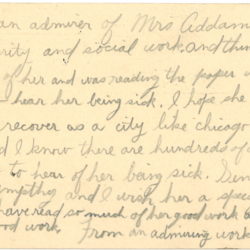 an admirer of Mrs Addam
rity and social work and thin
of her and was reading the paper
hear her being sick. I hope she
recover as a city like chicago
d I know there are hundreds of
to hear of her being sick. Sin
mpathy and I wish her a spec
have read so much of her good work
good work. From an admiring work